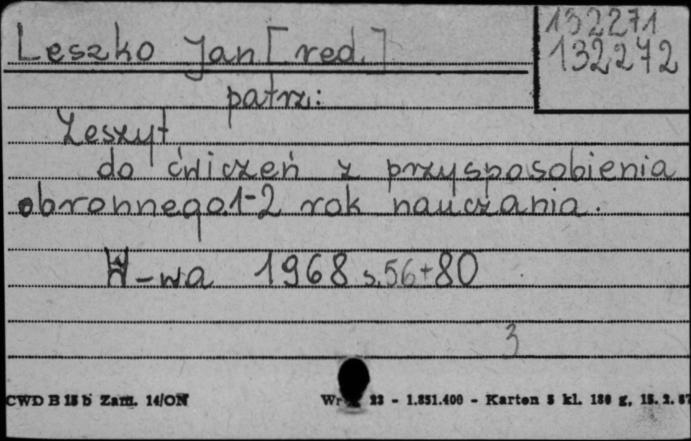 Leszko Jan [red.]
132271
132272
patrz:
Zeszyt
do ćwiczeń z przysposobienia
obronnego. 1-2 rok nauczania.
W-wa 1968 s. 56+80
3
CWD B 15 b Zam. 14/ON
23 - 1.851.400 - Karton 5 kl. 180 g, 15. 2. 67